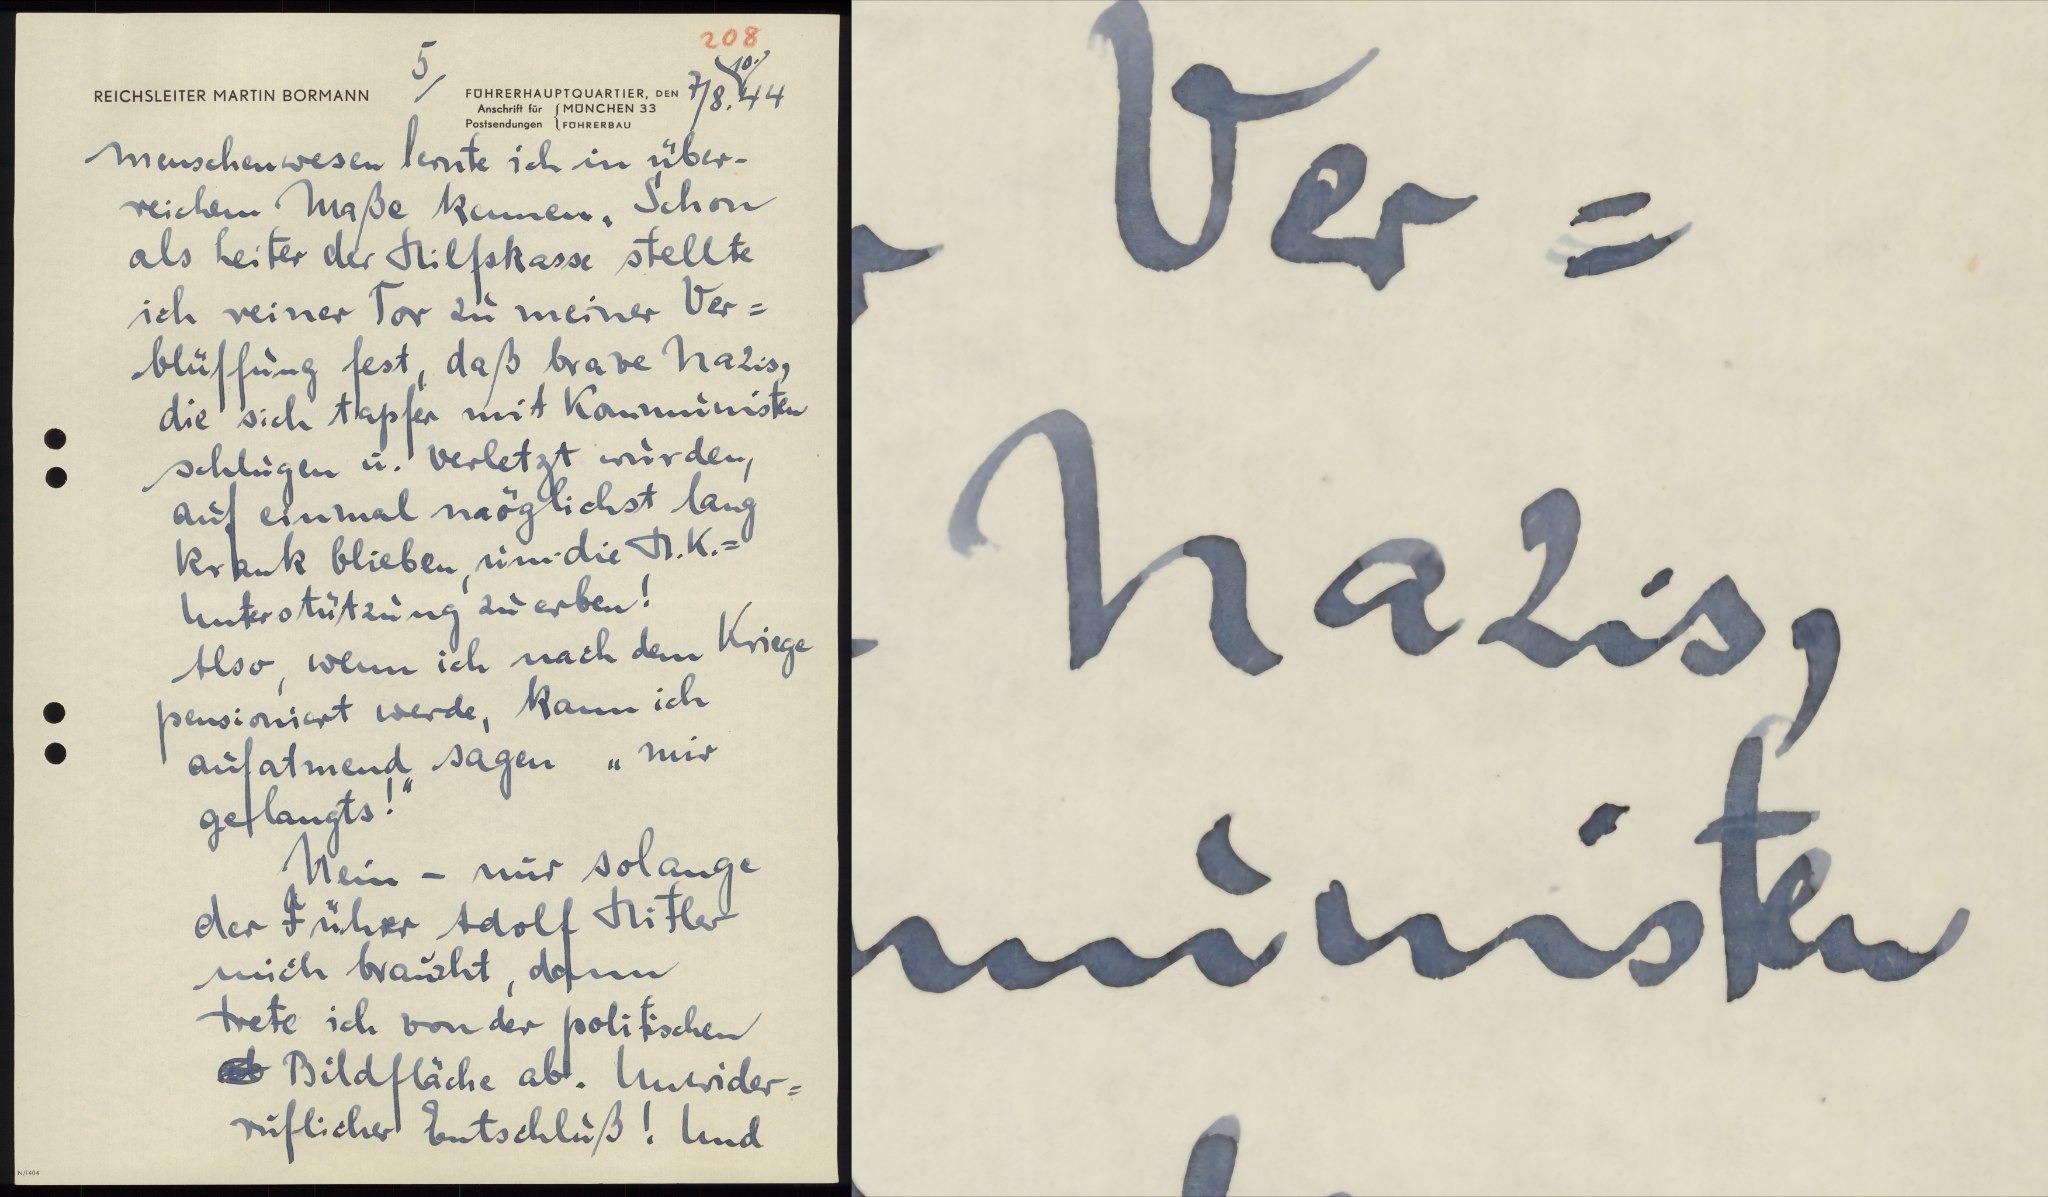 208
5/
REICHSLEITER MARTIN BORMANN
FÜHRERHAUPTQUARTIER, DEN 7/8. 10. 44
Anschrift für MÜNCHEN 33
Postsendungen FÜHRERBAU
Menschenwesen lernte ich in über-
reichem Maße kennen. Schon
als Leiter der Hilfskasse stellte
ich reiner Tor zu meiner Ver=
blüffung fest, daß brave Nazis,
die sich tapfer mit Kommunisten
schlugen u. verletzt wurden,
auf einmal möglichst lang
krank blieben, um die H.K.=
Unterstützung zu erben!
Also, wenn ich nach dem Kriege
pensioniert werde, kann ich
aufatmend sagen „mir
gelangts!"
Nein – nur solange
der Führer Adolf Hitler
mich braucht, dann
trete ich von der politischen
Bildfläche ab. Unwider=
ruflicher Entschluß! Und
N/1404
Ver=
Nazis,
munisten